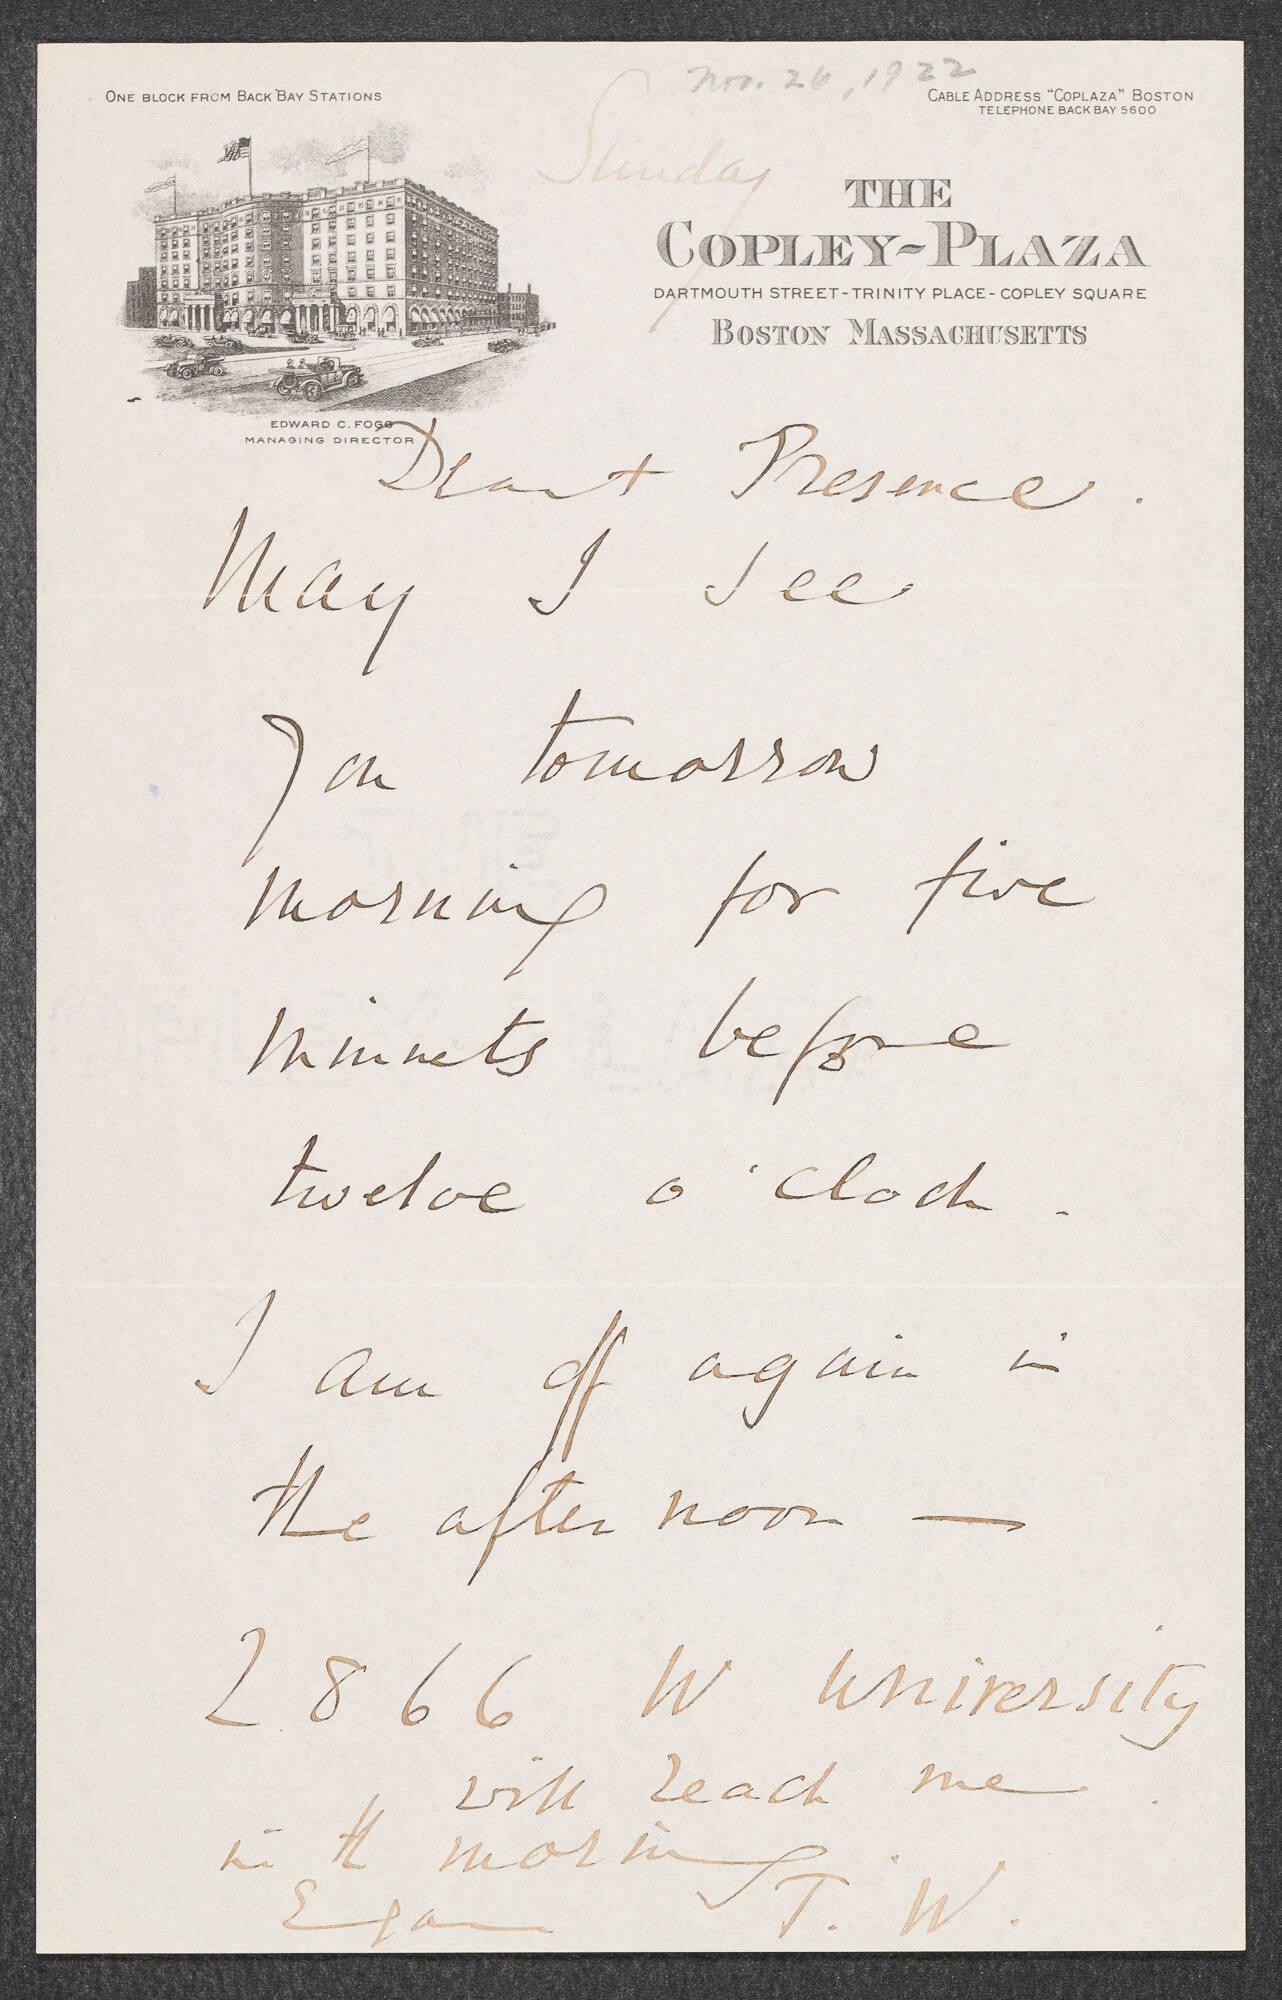 Nov. 26, 1922
ONE BLOCK FROM BACK BAY STATIONS
CABLE ADDRESS "COPLAZA" BOSTON
TELEPHONE BACK BAY 5600
Sunday
THE
COPLEY-PLAZA
DARTMOUTH STREET-TRINITY PLACE-COPLEY SQUARE
BOSTON MASSACHUSETTS
EDWARD C. FOGG
MANAGING DIRECTOR
Dearest Presence.
May I see
you tomorrow
morning for five
minuets before
twelve o'clock.
I am off again in
the after noon —
2866 W University
will reach me.
in th morning.
T. W.